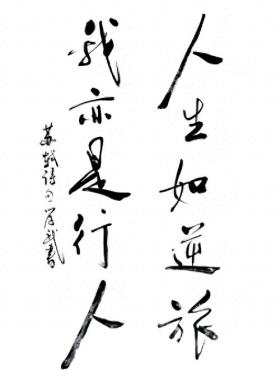 人生如逆旅
我亦是行人
苏轼诗句